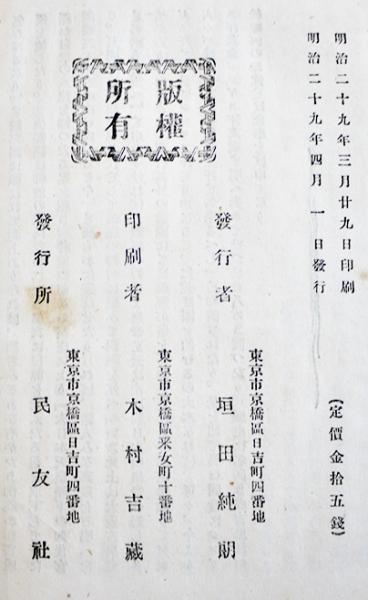 明治二十九年三月廿九日印刷
明治二十九年四月一日發行
(定價金拾五錢)
版權
所有
東京市京橋區日吉町四番地
發行者 垣田純朗
東京市京橋區采女町十番地
印刷者 木村吉藏
東京市京橋區日吉町四番地
發行所 民友社